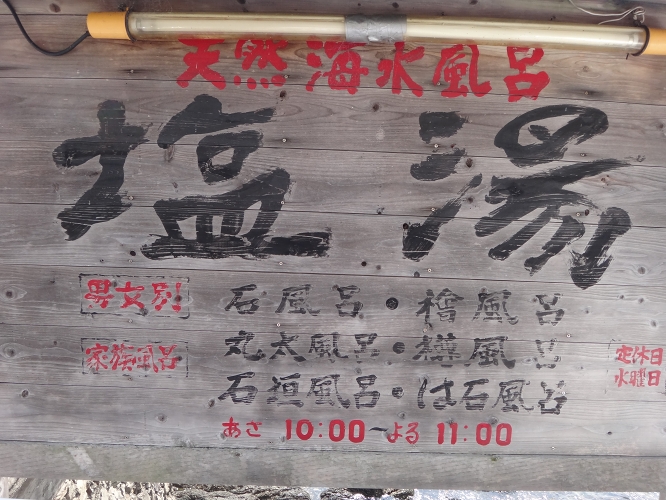 天然海水風呂
塩湯
男女別 石風呂・檜風呂
家族風呂 丸太風呂・樽風呂
石垣風呂・は石風呂
定休日
水曜日
あさ 10:00〜よる 11:00